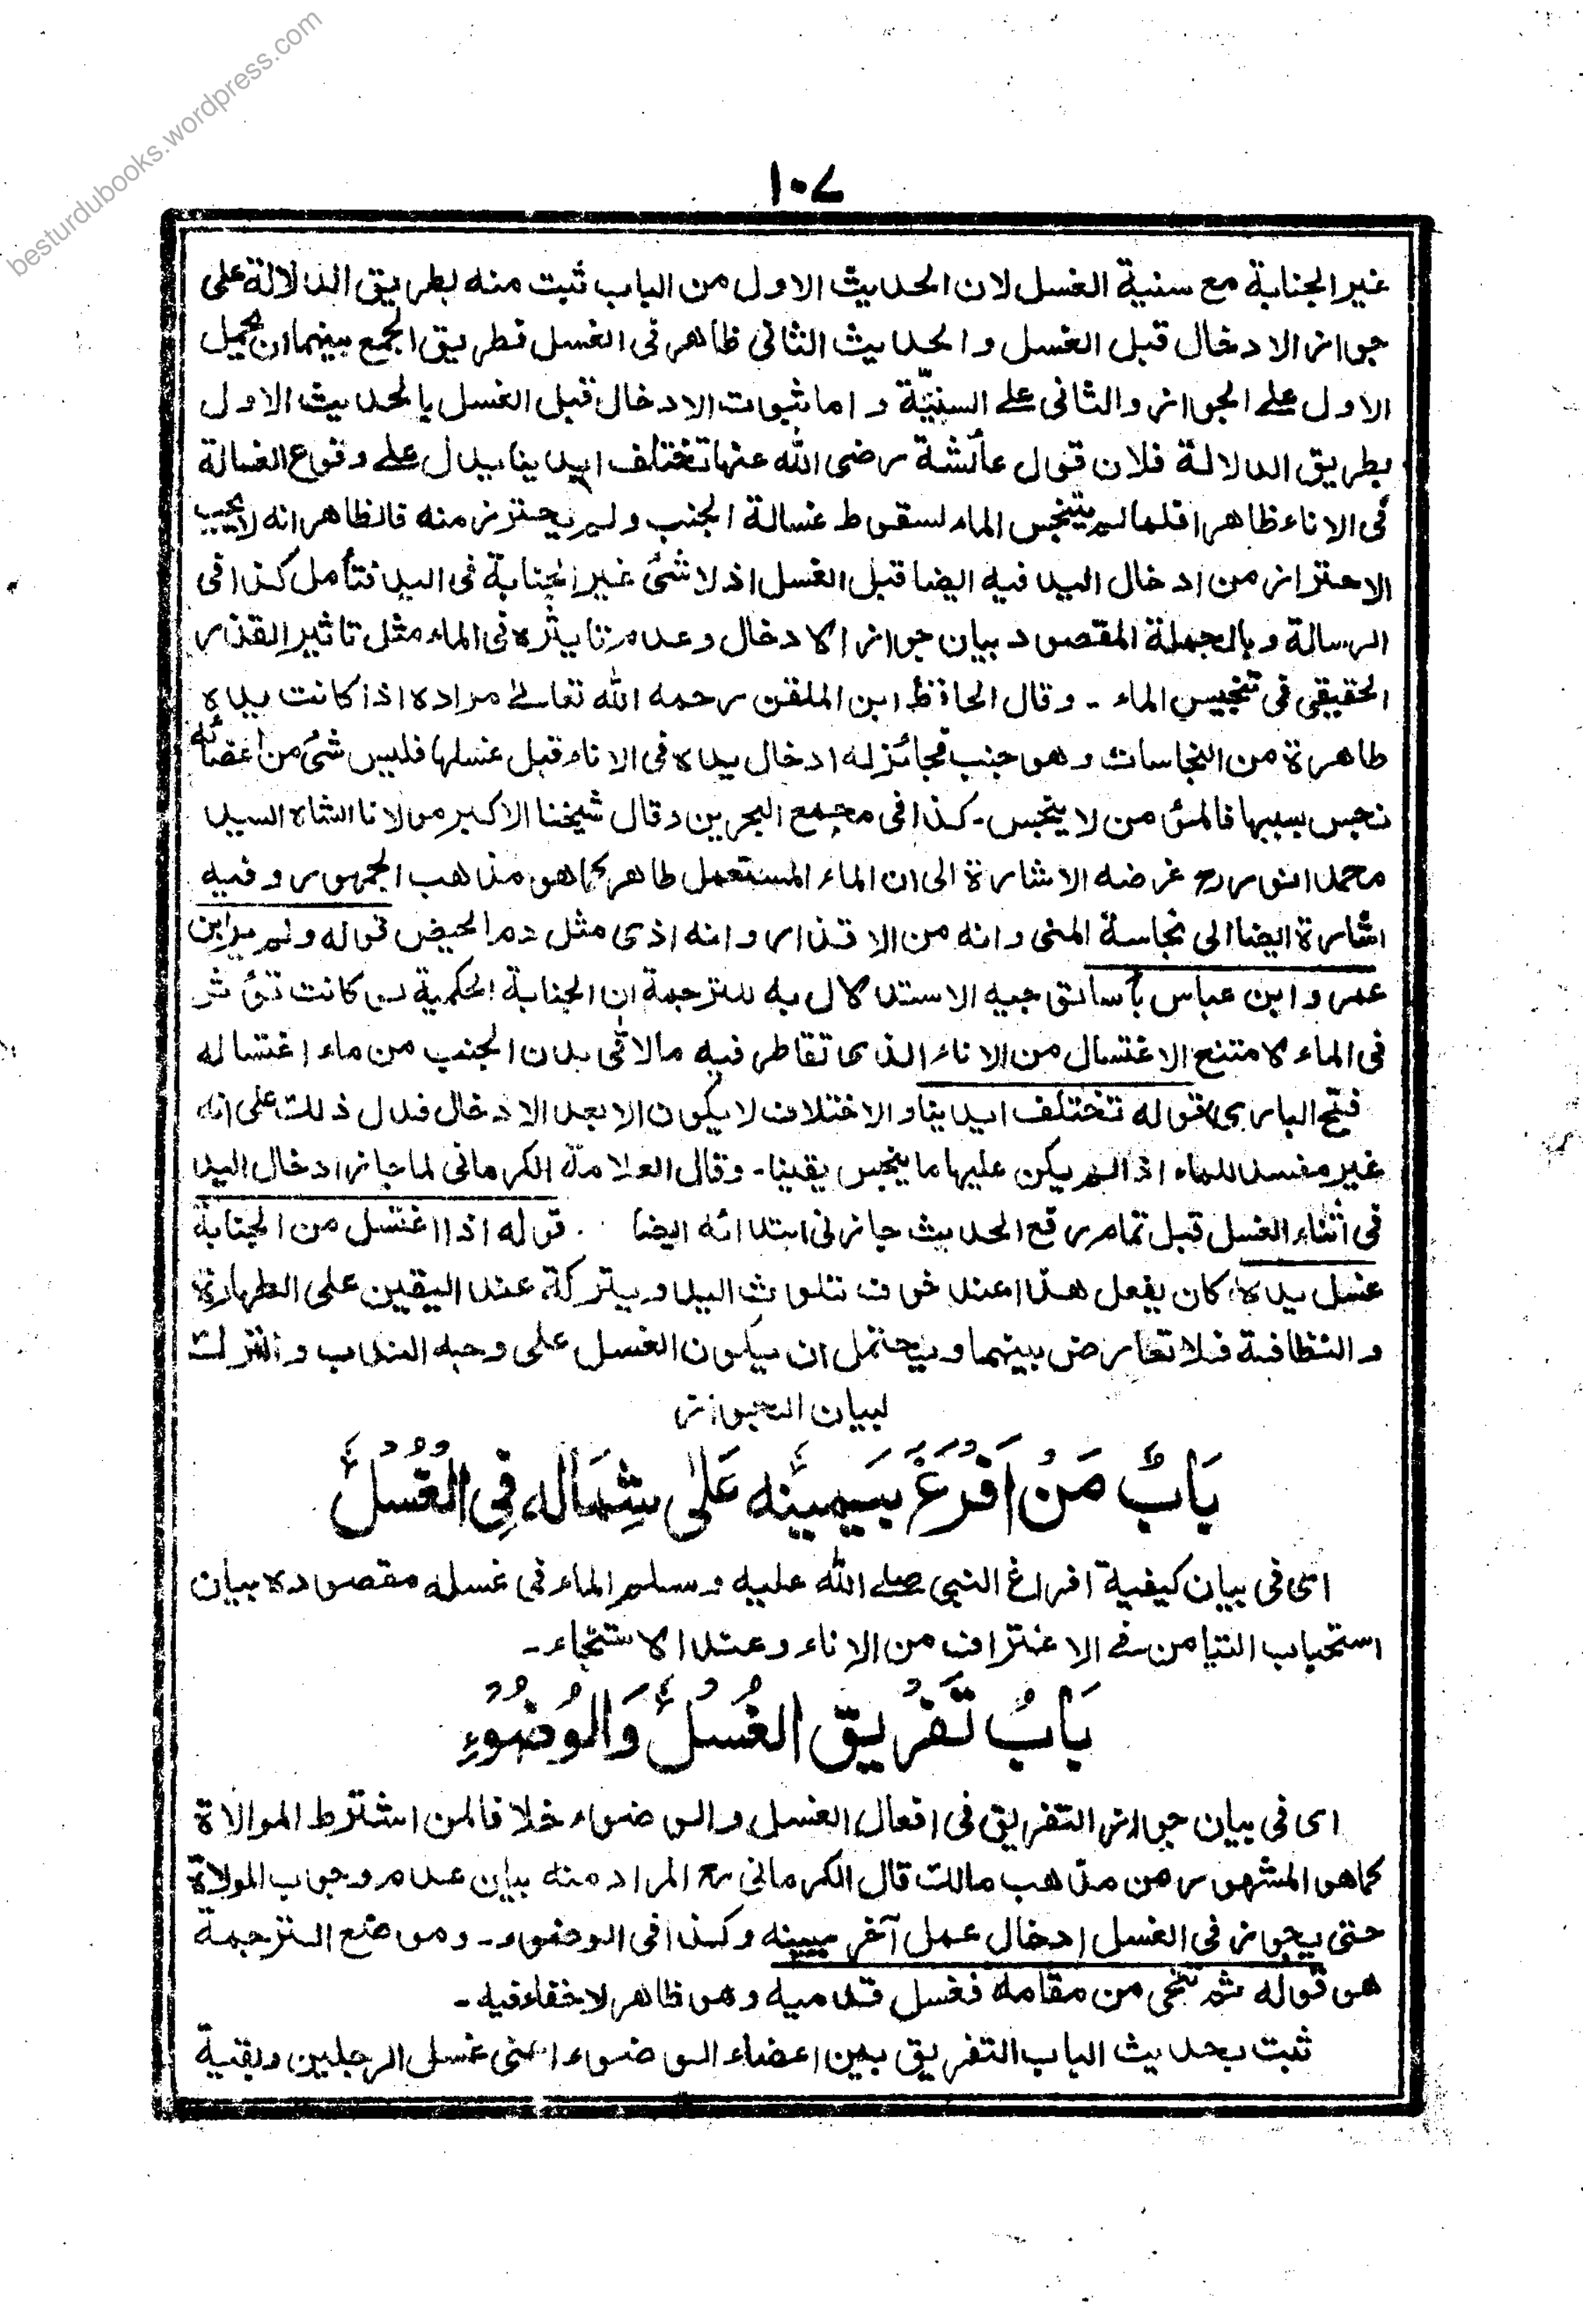 besturdubooks.wordpress.com
١٠٧
غير الجنابة مع سنية الغسل لان الحديث الاول من الباب ثبت منه بطريق الدلالة على
جواز الادخال قبل الغسل والحديث الثانى ظاهر فى الغسل فطريق الجمع بينهما ان يحمل
الاول على الجواز والثانى على السنيّة واما ثبوت الادخال قبل الغسل بالحديث الاول
بطريق الدلالة فلان قول عائشة رضى الله عنها تختلف ايدينا يدل على وقوع الغسالة
فى الاناء ظاهرا فلما لم يتنجس الماء لسقوط غسالة الجنب ولم يحترز منه فالظاهر انه لا يجب
الاحتراز من ادخال اليد فيه ايضا قبل الغسل اذ لا شئ غير الجنابة فى اليد فتأمل كذا فى
الرسالة وبالجملة المقصود بيان جواز الادخال وعدم تاثيره فى الماء مثل تاثير القذر
الحقيقى فى تنجيس الماء - وقال الحافظ ابن الملقن رحمه الله تعالى مراده اذا كانت يده
طاهرة من النجاسات وهو جنب فجائز له ادخال يده فى الاناء قبل غسلها فليس شئ من اعضائه
نجس بسببها فالمؤمن لا ينجس - كذا فى مجمع البحرين وقال شيخنا الاكبر مولانا الشاه السيد
محمد انور رح غرضه الاشارة الى ان الماء المستعمل طاهر كما هو مذهب الجمهور وفيه
اشارة ايضا الى نجاسة المنى وانه من الاقذار وانه اذى مثل دم الحيض قوله ولم ير ابن
عمر وابن عباس بأسا توجيه الاستدلال به للترجمة ان الجنابة الحكمية لو كانت تؤثر
فى الماء لامتنع الاغتسال من الاناء الذى تقاطر فيه ما لاقى بدن الجنب من ماء اغتساله
فتح البارى) قوله تختلف ايدينا والاختلاف لا يكون الا بعد الادخال فدل ذلك على انه
غير مفسد للماء اذا لم يكن عليها ما ينجس يقينا - وقال العلامة الكرمانى لما جاز ادخال اليد
فى أثناء الغسل قبل تمام رفع الحديث جاز فى ابتدائه ايضا . قوله اذا اغتسل من الجنابة
غسل يده كان يفعل هذا عند خوف تلوث اليد ويتركه عند اليقين على الطهارة
والنظافة فلا تعارض بينهما ويحتمل ان يكون الغسل على وجه الندب والترك
لبيان الجواز
بَابُ مَنْ اَفْرَغَ بِيَمِيْنِه عَلٰى شِمَالِه فِى الْغُسْلِ
اى فى بيان كيفية افراغ النبى صلى الله عليه وسلم الماء فى غسله مقصوده بيان
استحباب التيامن فى الاغتراف من الاناء وعند الاستنجاء -
بَابُ تَفْرِيْقِ الْغُسْلِ وَالْوُضُوْءِ
اى فى بيان جواز التفريق فى افعال الغسل والوضوء خلافا لمن اشترط الموالاة
كما هو المشهور من مذهب مالك قال الكرمانى رح المراد منه بيان عدم وجوب المولاة
حتى يجوز فى الغسل ادخال عمل آخر بينه وكذا فى الوضوء - وموضع الترجمة
هو قوله ثم تنحى من مقامه فغسل قدميه وهو ظاهر لا خفاء فيه -
ثبت بحديث الباب التفريق بين اعضاء الوضوء اعنى غسل الرجلين وبقية